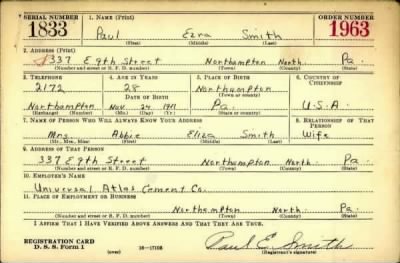 SERIAL NUMBER 1. NAME (Print) ORDER NUMBER
1833 Paul Ezra Smith 1963
(First) (Middle) (Last)
2. ADDRESS (Print)
337 E 9th Street Northampton North. Pa.
(Number and street or R. F. D. number) (Town) (County) (State)
3. TELEPHONE 4. AGE IN YEARS 5. PLACE OF BIRTH 6. COUNTRY OF CITIZENSHIP
2172 28 Northampton
(Town or county)
DATE OF BIRTH
Northampton Nov 24 1911 Pa. U.S.A.
(Exchange) (Number) (Mo.) (Day) (Yr.) (State or country)
7. NAME OF PERSON WHO WILL ALWAYS KNOW YOUR ADDRESS 8. RELATIONSHIP OF THAT PERSON
Mrs. Abbie Eliza Smith Wife
(Mr., Mrs., Miss) (First) (Middle) (Last)
9. ADDRESS OF THAT PERSON
337 E 9th Street Northampton North. Pa.
(Number and street or R. F. D. number) (Town) (County) (State)
10. EMPLOYER'S NAME
Universal Atlas Cement Co.
11. PLACE OF EMPLOYMENT OR BUSINESS
Northampton North. Pa.
(Number and street or R. F. D. number) (Town) (County) (State)
I AFFIRM THAT I HAVE VERIFIED ABOVE ANSWERS AND THAT THEY ARE TRUE.
REGISTRATION CARD
D. S. S. Form 1 (over) 16—17105 Paul E. Smith
(Registrant's signature)